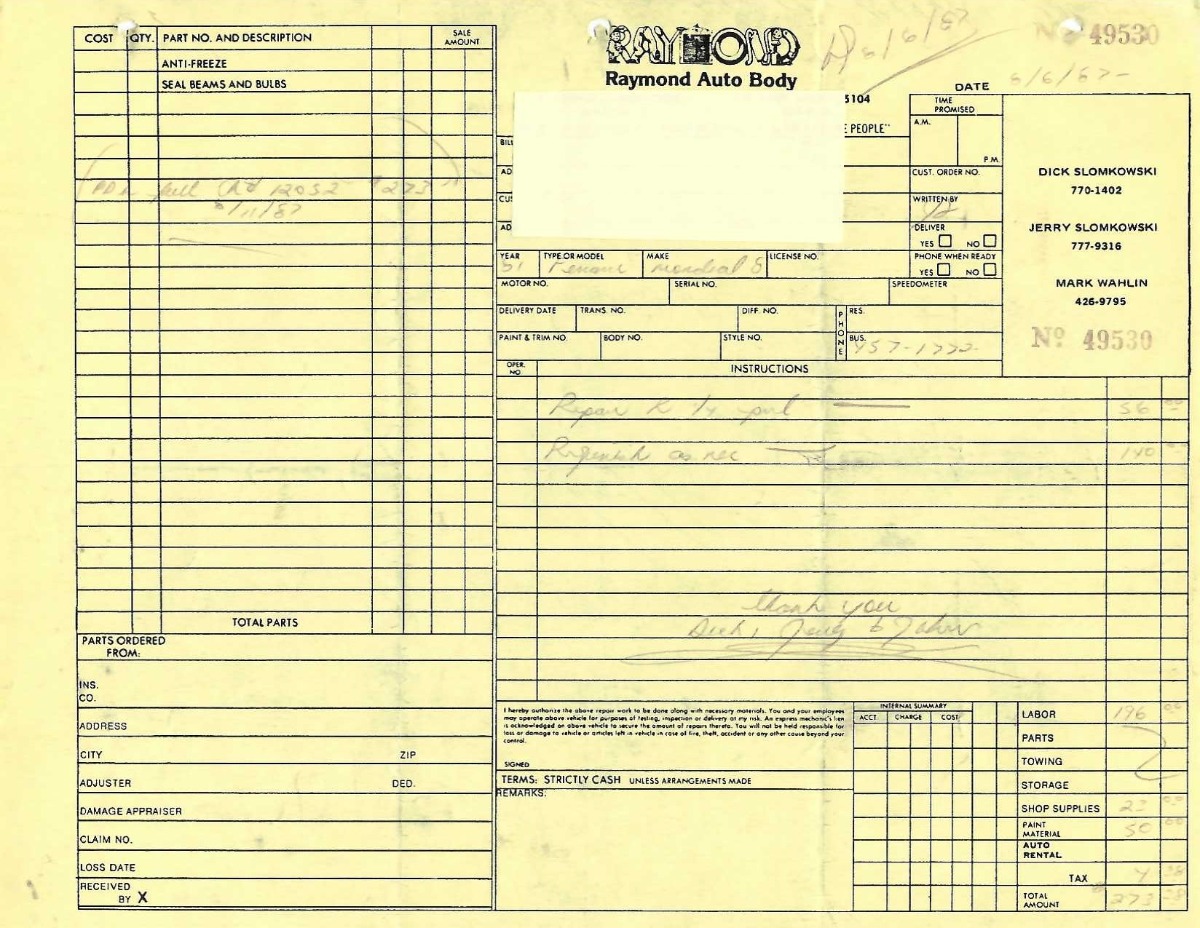 COST QTY. PART NO. AND DESCRIPTION SALE AMOUNT
ANTI-FREEZE
SEAL BEAMS AND BULBS
full 12052 $273
6/11/87
TOTAL PARTS
PARTS ORDERED
FROM:
INS.
CO.
ADDRESS
CITY ZIP
ADJUSTER DED.
DAMAGE APPRAISER
CLAIM NO.
LOSS DATE
RECEIVED
BY X
RAYMOND
Raymond Auto Body
5104
E PEOPLE"
6/6/87
Nº 49530
DATE 6/6/87-
TIME
PROMISED
A.M.
P.M.
CUST. ORDER NO.
WRITTEN BY
DELIVER
YES NO
PHONE WHEN READY
YES NO
DICK SLOMKOWSKI
770-1402
JERRY SLOMKOWSKI
777-9316
MARK WAHLIN
426-9795
Nº 49530
BILL
AD
CU
AD
YEAR TYPE OR MODEL MAKE LICENSE NO.
81 Mondial 8
MOTOR NO. SERIAL NO. SPEEDOMETER
DELIVERY DATE TRANS. NO. DIFF. NO. PHONE RES.
PAINT & TRIM NO. BODY NO. STYLE NO. BUS.
457-1772
OPER.
NO. INSTRUCTIONS
Repair R 1/4 pnl 56 00
Refinish as nec 140 00
Thank you
Dick, Jerry & John
I hereby authorize the above repair work to be done along with necessary materials. You and your employees
may operate above vehicle for purposes of testing, inspection or delivery at my risk. An express mechanic's lien
is acknowledged on above vehicle to secure the amount of repairs thereto. You will not be held responsible for
loss or damage to vehicle or articles left in vehicle in case of fire, theft, accident or any other cause beyond your
control.
SIGNED
TERMS: STRICTLY CASH UNLESS ARRANGEMENTS MADE
REMARKS:
INTERNAL SUMMARY
ACCT. CHARGE COST
LABOR 196 00
PARTS
TOWING
STORAGE
SHOP SUPPLIES 23 00
PAINT
MATERIAL 50 00
AUTO
RENTAL
TAX 4 38
TOTAL
AMOUNT 273 38